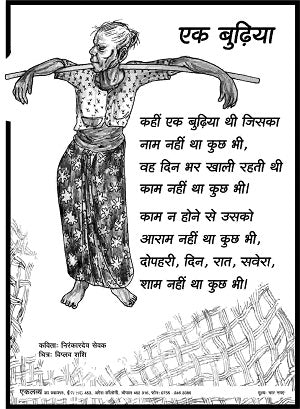 एक बुढ़िया
कहीं एक बुढ़िया थी जिसका
नाम नहीं था कुछ भी,
वह दिन भर खाली रहती थी
काम नहीं था कुछ भी।
काम न होने से उसको
आराम नहीं था कुछ भी,
दोपहरी, दिन, रात, सवेरा,
शाम नहीं था कुछ भी।
कविताः निरंकारदेव सेवक
चित्रः विप्लव शशि
एकलव्य का प्रकाशन,